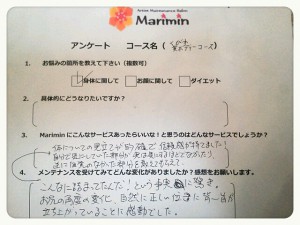 Marimin
アンケート　コース名（　　コース）
1. お悩みの箇所を教えて下さい（複数可）
身体に関して　お顔に関して　ダイエット
2. 具体的にどうなりたいですか？
3. Mariminにこんなサービスあったらいいな！と思うのはどんなサービスでしょうか？
体についての見立てが的確で、信頼感が持てました！
自分で気にしていた部分が実は
また自覚のなかった部分を教えてもらえて
4. メンテナンスを受けてみてどんな変化がありましたか？感想をお願いします。
こんなに詰まってたんだ！という事実に驚き。
お尻の高度の変化、自然に正しい位置に背・首が
立ち上がっていることに感動でした。